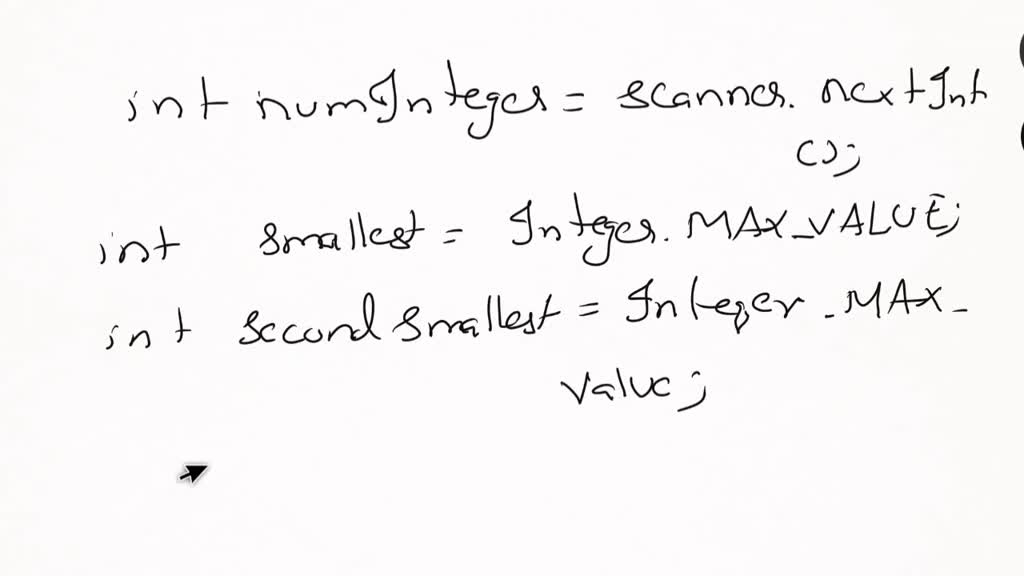 int numInteger = scanner. nextInt
();
int smallest = Integer. MAX_VALUE;
int second smallest = Integer _MAX_
Value;